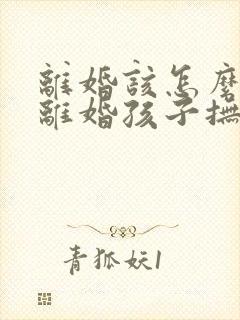 離婚該怎麼
離婚孩子撫
青狐妖1